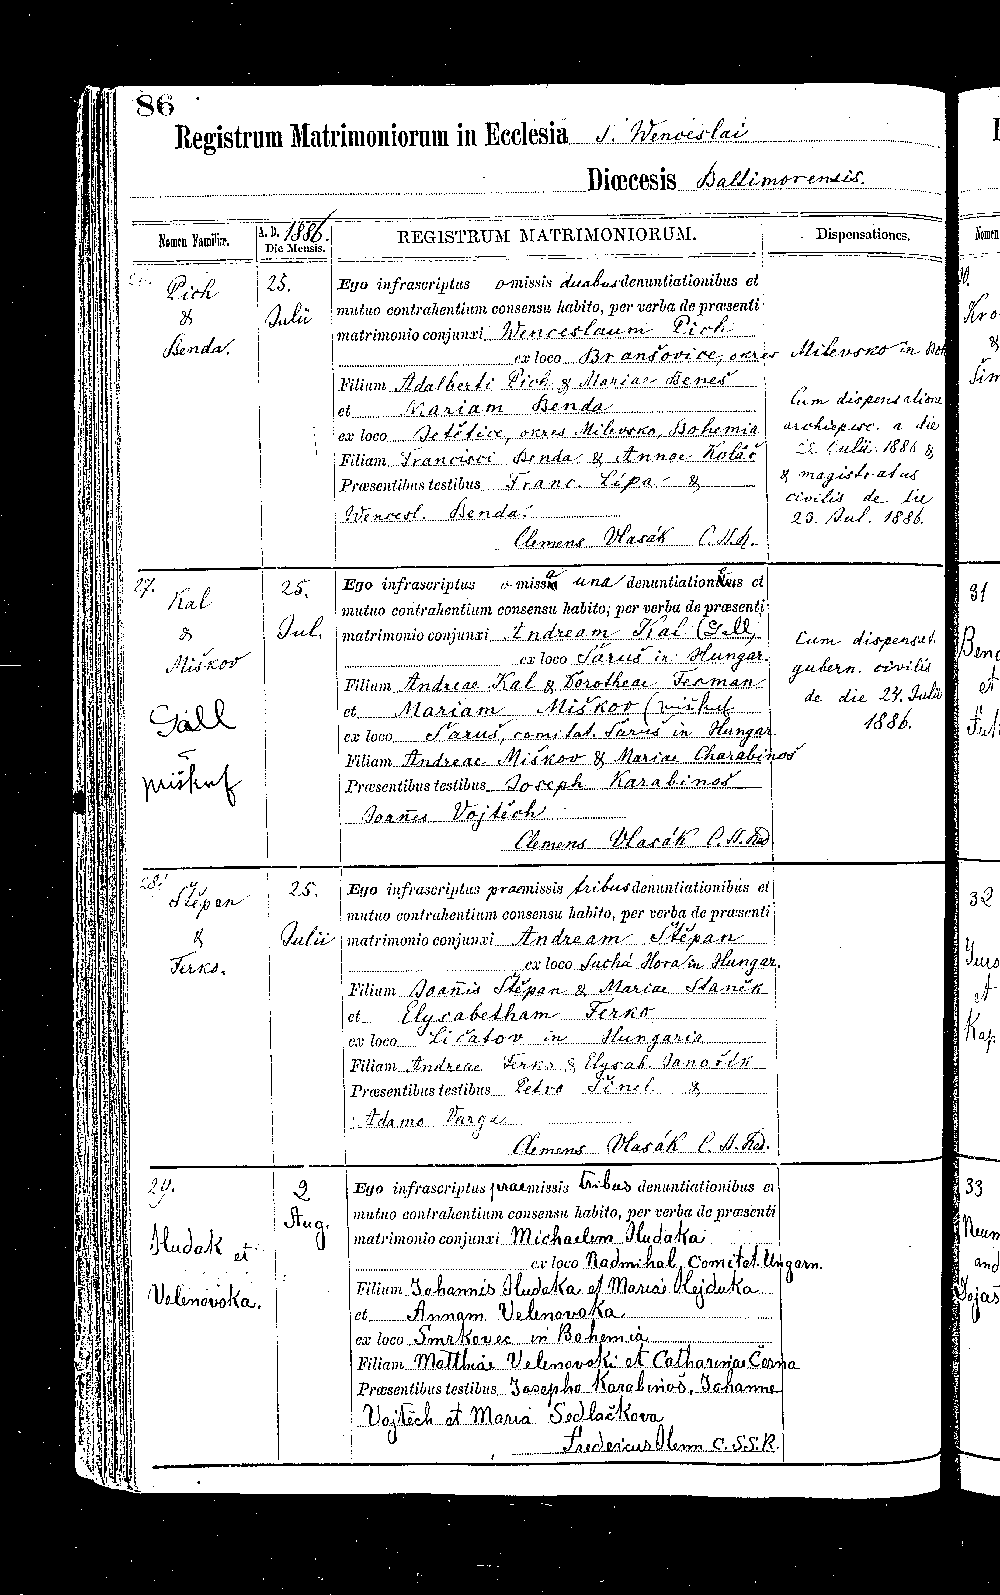 86
Registrum Matrimoniorum in Ecclesia S. Wenceslai
Diœcesis Baltimorensis.
Nomen Familiæ.
A. D. 1886.
Die Mensis.
REGISTRUM MATRIMONIORUM.
Dispensationes.
Pich
&
Benda.
25.
Julii
Ego infrascriptus omissis duabus denuntiationibus et
mutuo contrahentium consensu habito, per verba de præsenti
matrimonio conjunxi Wenceslaum Pich
ex loco Branšovice, okres Milevsko in
Filium Adalberti Pich & Mariae Beneš
et Mariam Benda
ex loco Jetětice, okres Milevsko, Bohemia
Filiam Francisci Benda & Annae Kolář
Præsentibus testibus Franc. Lípa &
Wencesl. Benda.
Clemens Vlasák
Cum dispensatione
archiepisc. a die
Julii 1886 &
& magistratus
civilis de die
23. Jul. 1886.
27.
Kal
&
Miškov
Gall
25.
Jul.
Ego infrascriptus omissa una denuntiatione et
mutuo contrahentium consensu habito, per verba de præsenti
matrimonio conjunxi Andream Kal (Gall)
ex loco Šaruš in Hungar.
Filium Andreae Kal & Dorotheae Ferman
et Mariam Miškov
ex loco Šaruš, comitat. Šaruš in Hungar
Filiam Andreae Miškov & Mariae Charabinoš
Præsentibus testibus Joseph Karabinoš
Joañes Vojtěch
Clemens Vlasák
Cum dispensat.
gubern. civilis
de die 24. Julii
1886.
28.
Štěpan
&
Ferko.
25.
Julii
Ego infrascriptus praemissis tribus denuntiationibus et
mutuo contrahentium consensu habito, per verba de præsenti
matrimonio conjunxi Andream Štěpan
ex loco Suchá Hora in Hungar.
Filium Joañis Štěpan & Mariae Staněk
et Elysabetham Ferko
ex loco Ličatov in Hungaria
Filiam Andreae Ferko & Elysab. Janošík
Præsentibus testibus Petro &
Adamo Varga
Clemens Vlasák
29.
Hudak et
Velenovska.
2
Aug.
Ego infrascriptus praemissis tribus denuntiationibus et
mutuo contrahentium consensu habito, per verba de præsenti
matrimonio conjunxi Michaelem Hudaka
ex loco Radmihal, Comitat. Ungarn.
Filium Johannis Hudaka et Maria Hejduka
et Annam Velenovska
ex loco Smrkovec in Bohemia
Filiam Matthiae Velenovski et Catharinae Černa
Præsentibus testibus Josepho Karabinoš, Johanne
Vojtěch et Maria Sedlačkova
Fredericus C.S.S.R.
31
32
33